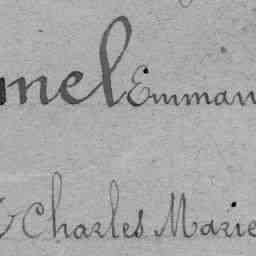 mel Emman
& Charles Marie